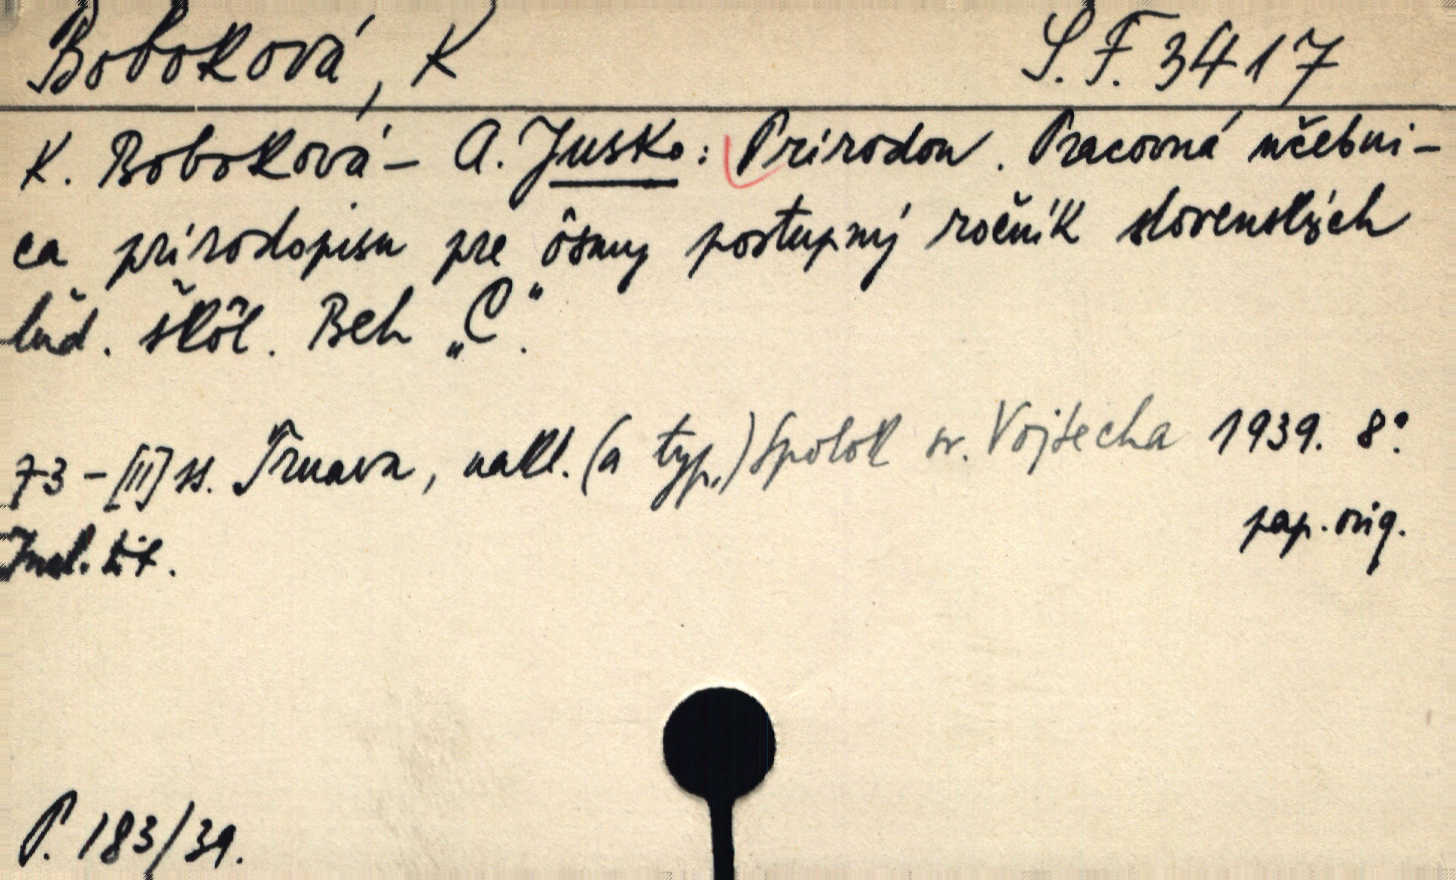 Boboková, K S.F. 3417
K. Boboková – A. Jusko: Prírodou. Pracovná učebni-
ca prírodopisu pre ôsmy postupný ročník slovenských
ľud. škôl. Beh „C“.
73 – [II] ss. Trnava, nakl. (a typ.) Spolok sv. Vojtecha 1939. 8°.
pap. orig.
tit.
P. 183/39.